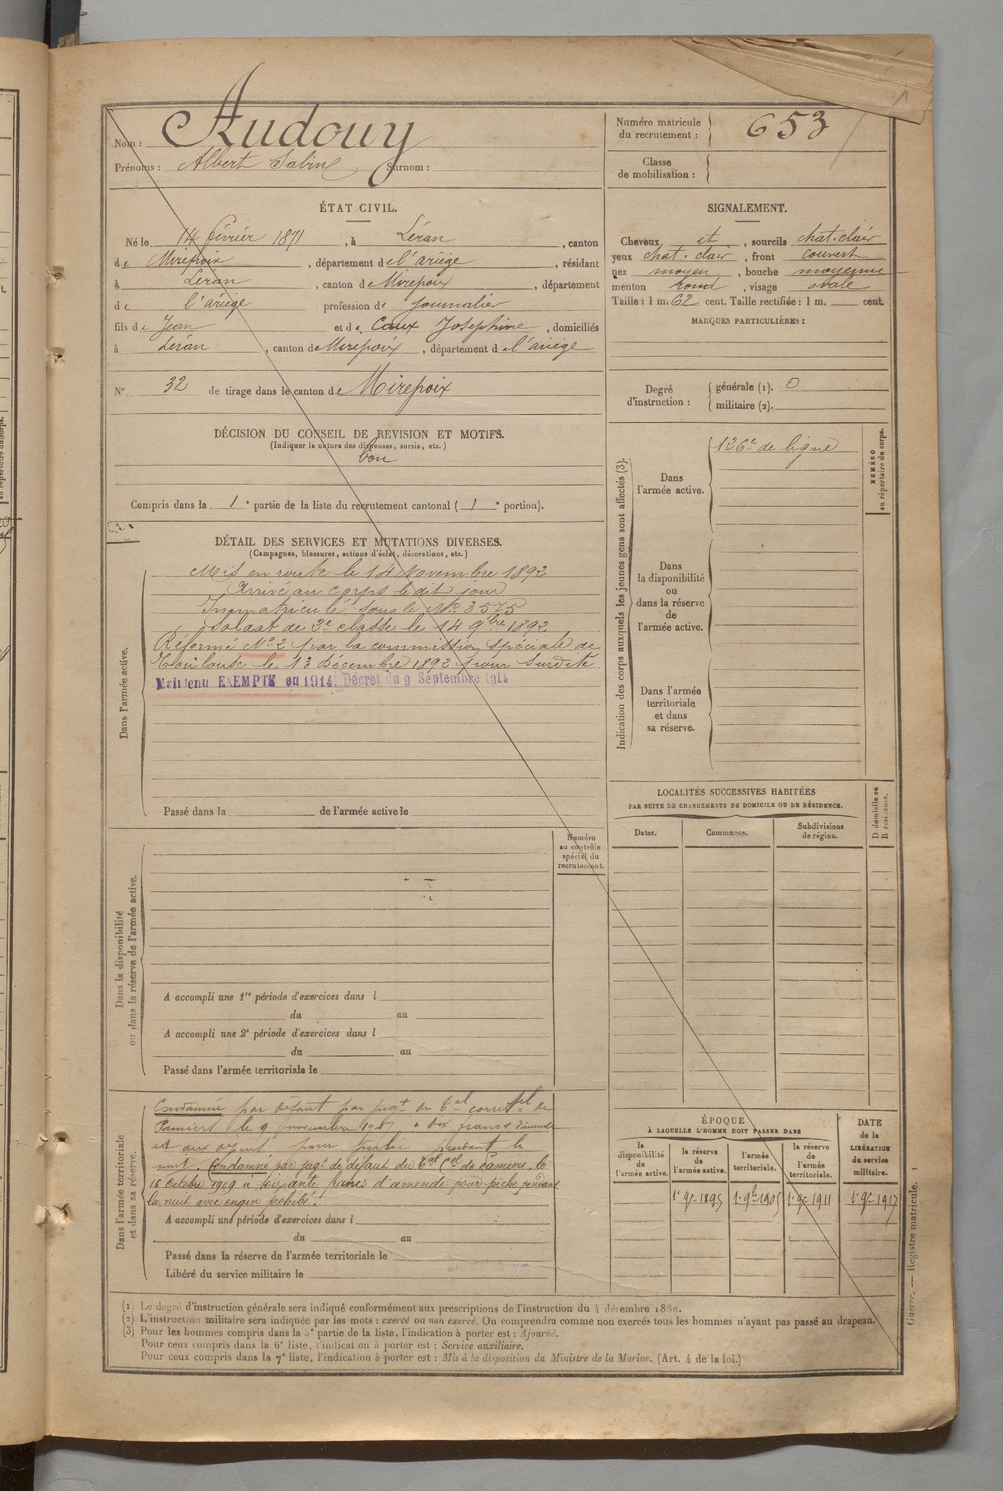 Nom : Audouy
Prénoms : Albert Sabin Surnom :
Numéro matricule du recrutement : 653
Classe de mobilisation :
ÉTAT CIVIL.
Né le 14 février 1871, à Léran, canton
de Mirepoix, département de l'ariège, résidant
à Léran, canton de Mirepoix, département
de l'ariège profession de Journalier
fils de Jean et de Caux Joséphine, domiciliés
à Léran, canton de Mirepoix, département de l'ariège
N° 32 de tirage dans le canton de Mirepoix
DÉCISION DU CONSEIL DE REVISION ET MOTIFS.
(Indiquer la nature des dispenses, sursis, etc.)
bon
Compris dans la 1e partie de la liste du recrutement cantonal (1e portion).
SIGNALEMENT.
Cheveux et, sourcils chat. clair
yeux chat. clair, front couvert
nez moyen, bouche moyenne
menton rond, visage ovale
Taille : 1 m. 62 cent. Taille rectifiée : 1 m. cent.
MARQUES PARTICULIÈRES :
Degré d'instruction : générale (1). 0
militaire (2).
DÉTAIL DES SERVICES ET MUTATIONS DIVERSES.
(Campagnes, blessures, actions d'éclat, décorations, etc.)
Dans l'armée active.
Mis en route le 14 Novembre 1892
Arrivé au corps le dit jour
Immatriculé sous le No 3575
Soldat de 2e classe le 14 9bre 1892
Réformé No 2 par la commission spéciale de
Toulouse le 13 Décembre 1892 pour surdité
Maintenu EXEMPTÉ en 1914. Décret du 9 Septembre 1914
Passé dans la de l'armée active le
Indication des corps auxquels les jeunes gens sont affectés (3).
NUMÉRO au répertoire du corps.
Dans l'armée active.
126e de ligne
Dans la disponibilité ou dans la réserve de l'armée active.
Dans l'armée territoriale et dans sa réserve.
LOCALITÉS SUCCESSIVES HABITÉES
PAR SUITE DE CHANGEMENTS DE DOMICILE OU DE RÉSIDENCE.
Dates. Communes. Subdivisions de région. D domicile ou R résidence.
Numéro au contrôle spécial du recrutement.
Dans la disponibilité ou dans la réserve de l'armée active.
A accompli une 1re période d'exercices dans l
du au
A accompli une 2e période d'exercices dans l
du au
Passé dans l'armée territoriale le
Dans l'armée territoriale et dans sa réserve.
Condamné par défaut par jugt du tal correctel de
Pamiers le 9 novembre 1907 francs d'amende
et aux dépens pour pendant la
nuit. Condamné par jugt de défaut du tal Cel de Pamiers le
16 Octobre 1909 à soixante francs d'amende pour pêche pendant
la nuit avec engin prohibé.
A accompli une période d'exercices dans l
du au
Passé dans la réserve de l'armée territoriale le
Libéré du service militaire le
ÉPOQUE
À LAQUELLE L'HOMME DOIT PASSER DANS
la disponibilité de l'armée active.
la réserve de l'armée active.
l'armée territoriale.
la réserve de l'armée territoriale.
DATE de la LIBÉRATION du service militaire.
1er 9bre 1895 1er 9bre 1905 1er 9bre 1911 1er 9bre 1917
(1) Le degré d'instruction générale sera indiqué conformément aux prescriptions de l'instruction du 4 décembre 1889.
(2) L'instruction militaire sera indiquée par les mots : exercé ou non exercé. On comprendra comme non exercés tous les hommes n'ayant pas passé au drapeau.
(3) Pour les hommes compris dans la 5e partie de la liste, l'indication à porter est : Ajourné.
Pour ceux compris dans la 6e liste, l'indication à porter est : Service auxiliaire.
Pour ceux compris dans la 7e liste, l'indication à porter est : Mis à la disposition du Ministre de la Marine. (Art. 4 de la loi.)
Guerre. — Registre matricule. 1